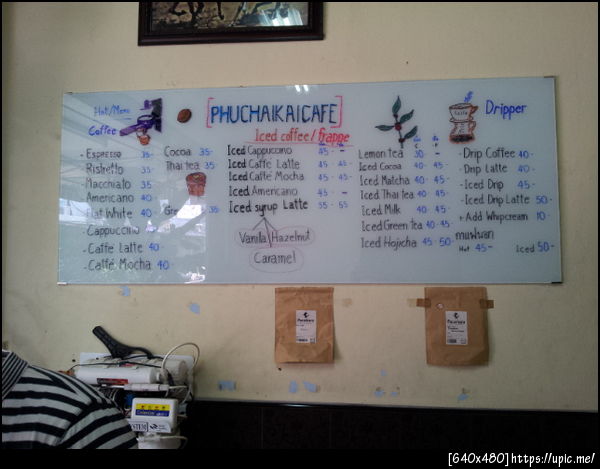 Hot/Menu
Coffee
- Espresso 35-
Ristretto 35-
Macchiato 35
Americano 40
Flat White 40
- Cappuccino
- Caffe Latte 40-
- Caffe Mocha 40
Cocoa 35-
Thai tea 35-
35-
[PHUCHAIKAICAFE]
Iced coffee/frappe
Iced Cappuccino 45 - -
Iced Caffe Latte 45 - 45 -
Iced Caffe Mocha 45 - 45 -
Iced Americano 45 - -
Iced syrup Latte 55 - 55
Vanila Hazelnut
Caramel
Lemon tea 30 - -
Iced Cocoa 40 - 45-
Iced Matcha 40 - 45-
Iced Thai tea 40 - 45
Iced Milk 40 - 45-
Iced Green tea 40 - 45-
Iced Hojicha 45 - 50-
Dripper
- Drip Coffee 40-
- Drip Latte 40-
- Iced Drip 45-
- Iced Drip Latte 50-
+ Add Whipcream 10-
กาแฟพวก
Hot 45- Iced 50-
[640x480]https://upic.me/